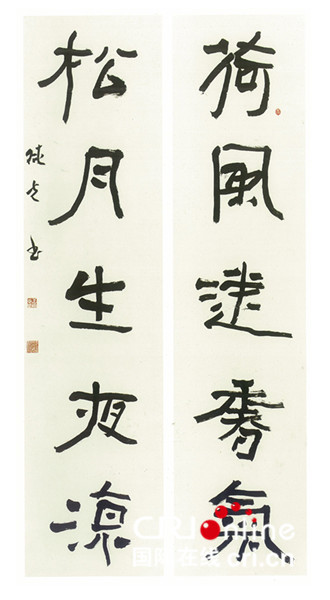 荷風送香氣
松月生夜涼
CRIonline
国际在线 cri.cn